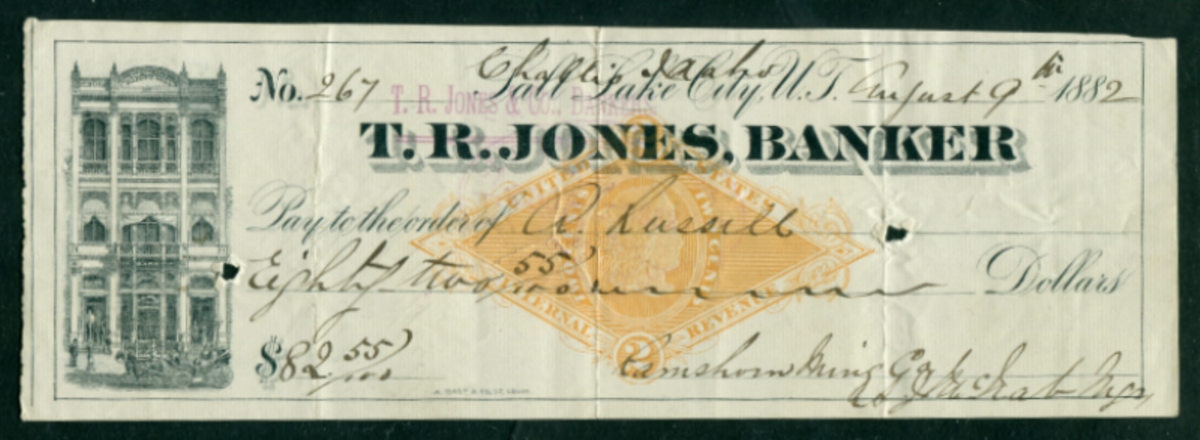 Challis Idaho
No. 267 Salt Lake City, U.T. August 9th 1882
T. R. JONES & CO., BANKERS
T. R. JONES, BANKER
UNITED STATES
Pay to the order of R. Russell
Eighty two 55/100 Dollars
INTERNAL REVENUE
2
$82 55/100
Ramshorn Mining Co
Mgr